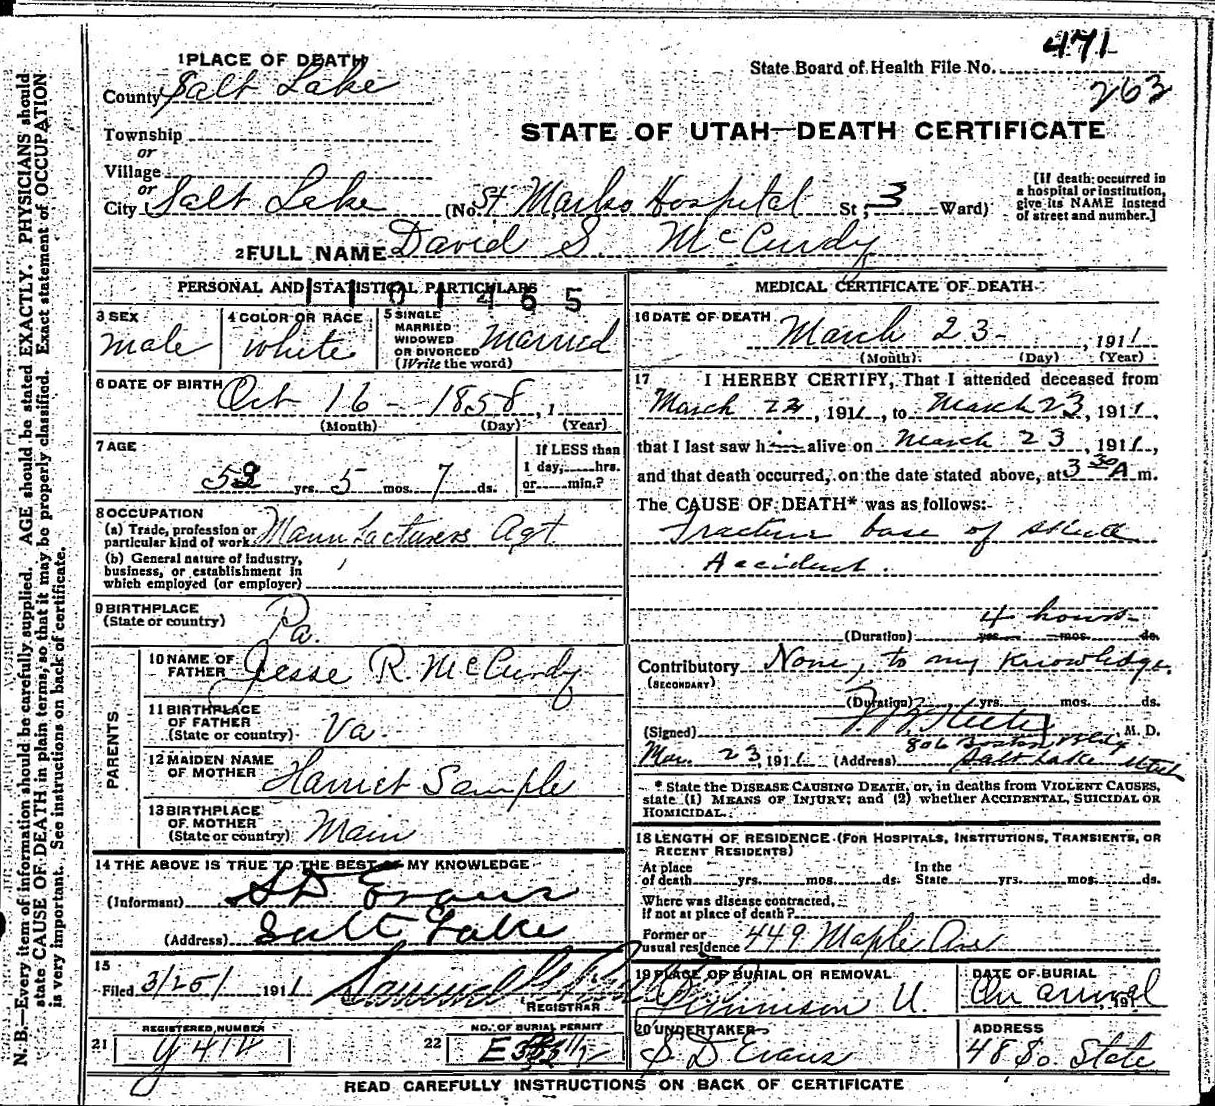 471
State Board of Health File No.
263
1 PLACE OF DEATH
County Salt Lake
Township
or
Village
or
City Salt Lake (No. St Marks Hospital St; 3 Ward)
STATE OF UTAH—DEATH CERTIFICATE
[If death occurred in
a hospital or institution,
give its NAME instead
of street and number.]
2 FULL NAME David S. McCurdy
PERSONAL AND STATISTICAL PARTICULARS
1101465
3 SEX
male
4 COLOR OR RACE
white
5 SINGLE
MARRIED
WIDOWED
OR DIVORCED
(Write the word)
Married
6 DATE OF BIRTH Oct 16 - 1858, 1
(Month) (Day) (Year)
7 AGE
52 yrs. 5 mos. 7 ds.
If LESS than
1 day, hrs.
or min.?
8 OCCUPATION
(a) Trade, profession or
particular kind of work Manufacturers Agt
(b) General nature of industry,
business, or establishment in
which employed (or employer)
9 BIRTHPLACE
(State or country) Pa.
PARENTS
10 NAME OF
FATHER Jesse R. McCurdy
11 BIRTHPLACE
OF FATHER
(State or country) Va.
12 MAIDEN NAME
OF MOTHER Harriet Sample
13 BIRTHPLACE
OF MOTHER
(State or country) Main
14 THE ABOVE IS TRUE TO THE BEST OF MY KNOWLEDGE
(Informant) S D Evans
(Address) Salt Lake
15
Filed 3/25/ 1911 Samuel G.
REGISTRAR
REGISTERED NUMBER
21
NO. OF BURIAL PERMIT
22
MEDICAL CERTIFICATE OF DEATH
16 DATE OF DEATH March 23 - , 1911
(Month) (Day) (Year)
17 I HEREBY CERTIFY, That I attended deceased from
March 22, 1911, to March 23, 1911,
that I last saw him alive on March 23, 1911,
and that death occurred, on the date stated above, at 3 30 A m.
The CAUSE OF DEATH* was as follows:
Fracture base of skull
Accident.
4 hours
(Duration) yrs. mos. ds.
Contributory None, to my knowledge.
(SECONDARY)
(Duration) yrs. mos. ds.
(Signed) M. D.
806 Boston Bldg
Mar. 23, 1911 (Address) Salt Lake Utah
* State the DISEASE CAUSING DEATH, or, in deaths from VIOLENT CAUSES,
state (1) MEANS OF INJURY; and (2) whether ACCIDENTAL, SUICIDAL OR
HOMICIDAL.
18 LENGTH OF RESIDENCE (FOR HOSPITALS, INSTITUTIONS, TRANSIENTS, OR
RECENT RESIDENTS)
At place
of death yrs. mos. ds.
In the
State yrs. mos. ds.
Where was disease contracted,
if not at place of death?
Former or
usual residence 449 Maple Ave
19 PLACE OF BURIAL OR REMOVAL
U.
DATE OF BURIAL
On arrival, 191
20 UNDERTAKER
S D Evans
ADDRESS
48 So. State
READ CAREFULLY INSTRUCTIONS ON BACK OF CERTIFICATE
N. B.—Every item of information should be carefully supplied. AGE should be stated EXACTLY. PHYSICIANS should
state CAUSE OF DEATH in plain terms, so that it may be properly classified. Exact statement of OCCUPATION
is very important. See instructions on back of certificate.